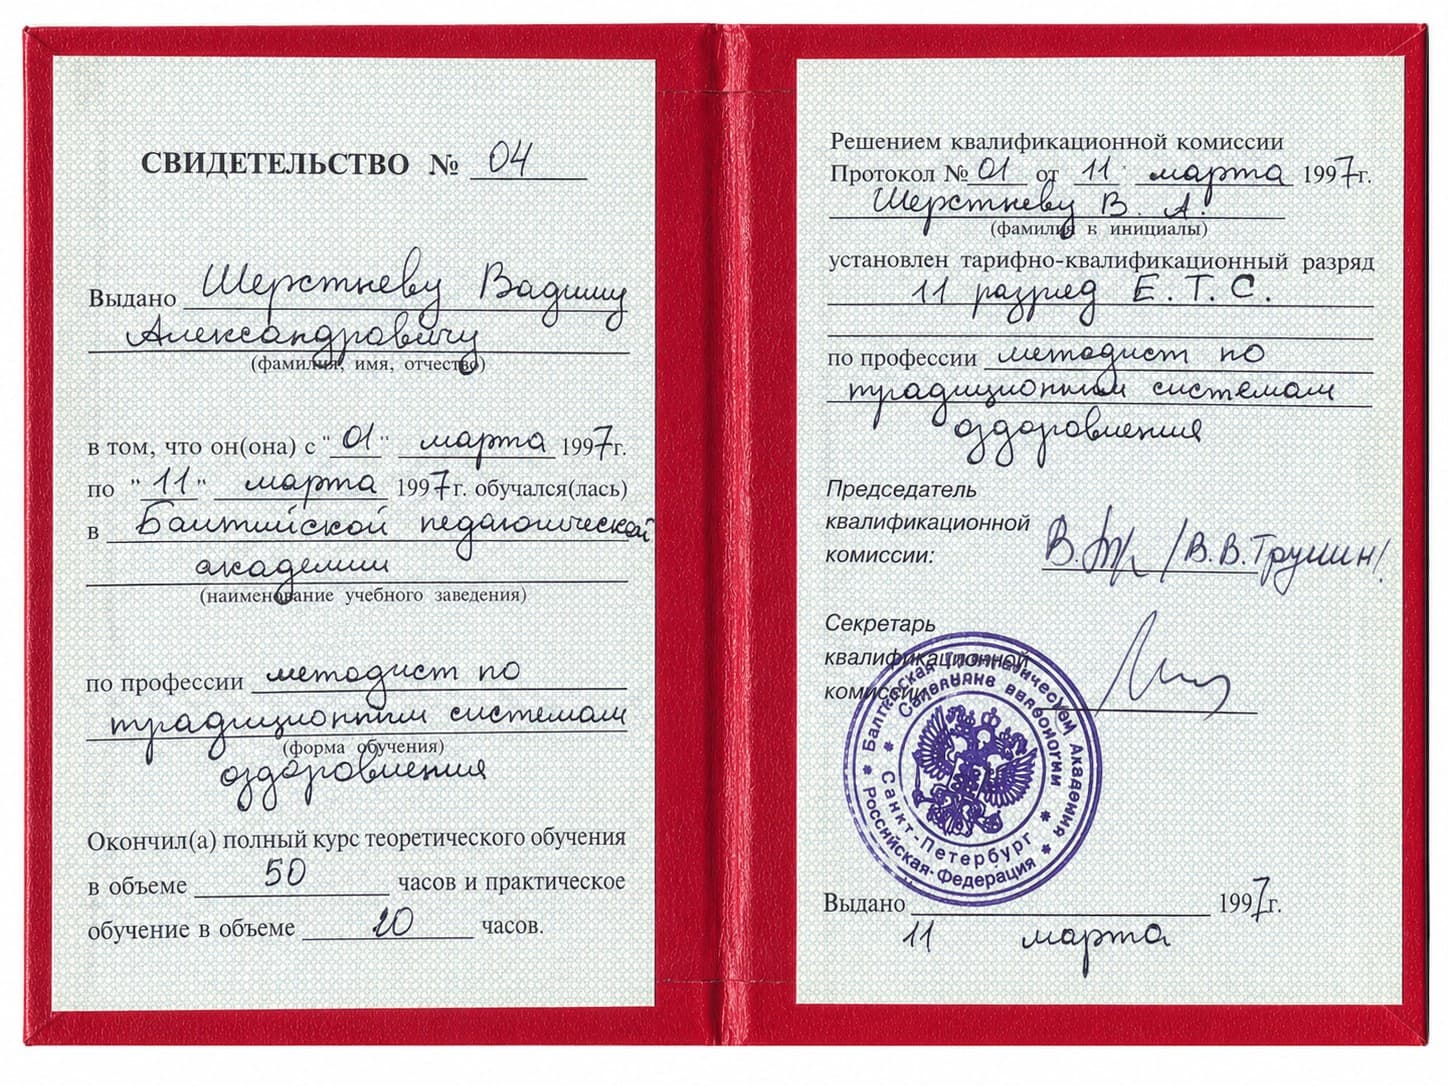 СВИДЕТЕЛЬСТВО № 04
Выдано Шерстневу Вадиму
Александровичу
(фамилия, имя, отчество)
в том, что он(она) с "01" марта 1997г.
по "11" марта 1997г. обучался(лась)
в Балтийской педагогической
академии
(наименование учебного заведения)
по профессии методист по
традиционным системам
(форма обучения)
оздоровления
Окончил(а) полный курс теоретического обучения
в объеме 50 часов и практическое
обучение в объеме 20 часов.
Решением квалификационной комиссии
Протокол № 01 от 11 марта 1997г.
Шерстневу В. А.
(фамилия к инициалы)
установлен тарифно-квалификационный разряд
11 разряд Е.Т.С.
по профессии методист по
традиционным системам
оздоровления
Председатель
квалификационной
комиссии: /В.В.Трунин/
Секретарь
квалификационной
комиссии
Балтийская Академия
Санкт-Петербург
Российская Федерация
Выдано 1997г.
11 марта